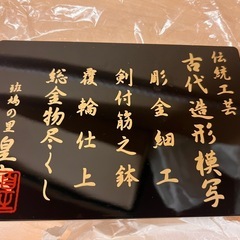 伝統工芸
古代造形模写
彫金細工
剣付筋之鉢
覆輪仕上
総金物尽くし
斑鳩の里
皇